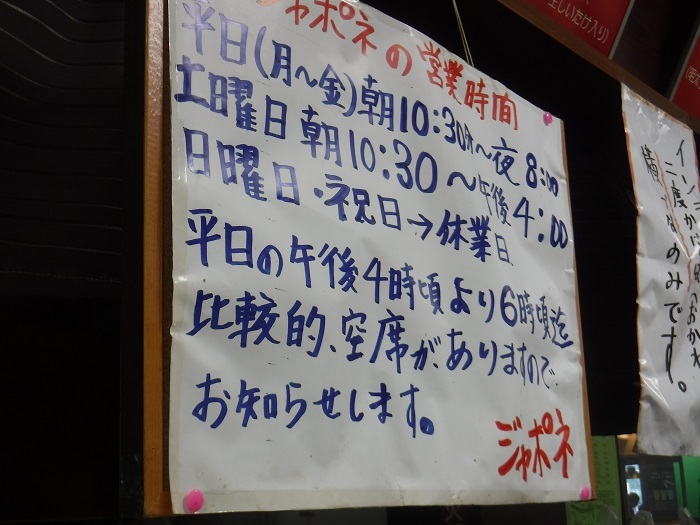 ジャポネの営業時間
平日(月～金)朝10:30分～夜8:00
土曜日朝10:30～午後4:00
日曜日・祝日→休業日
平日の午後4時頃より6時頃迄
比較的、空席が、ありますので
お知らせします。
ジャポネ
のみです。